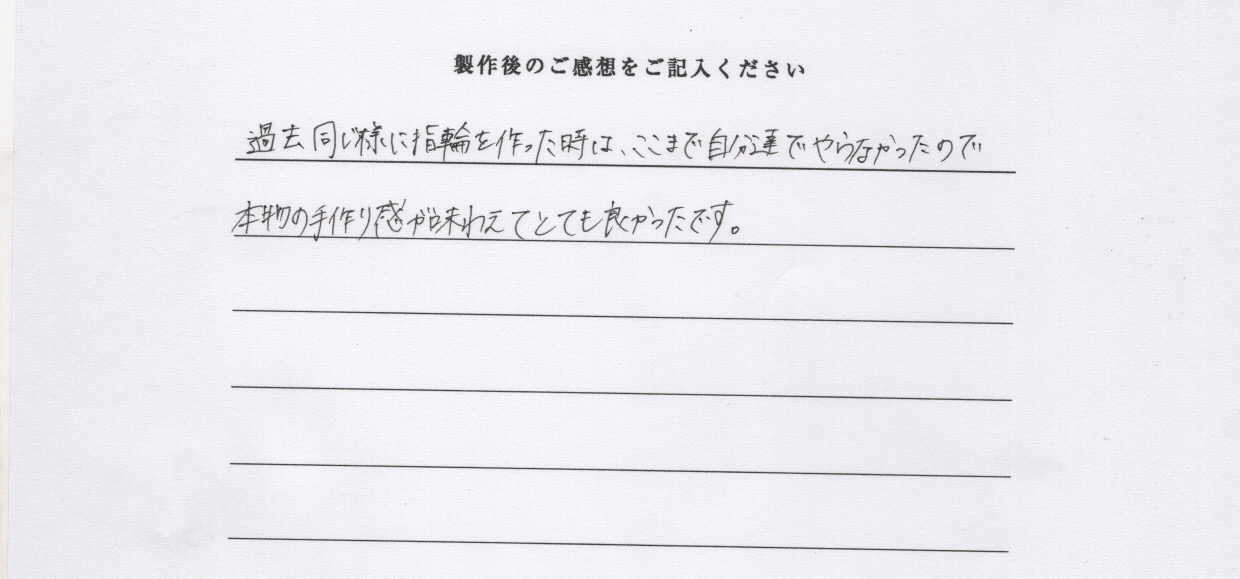 製作後のご感想をご記入ください
過去同じ様に指輪を作った時は、ここまで自分達でやらなかったので
本物の手作り感が味わえてとても良かったです。